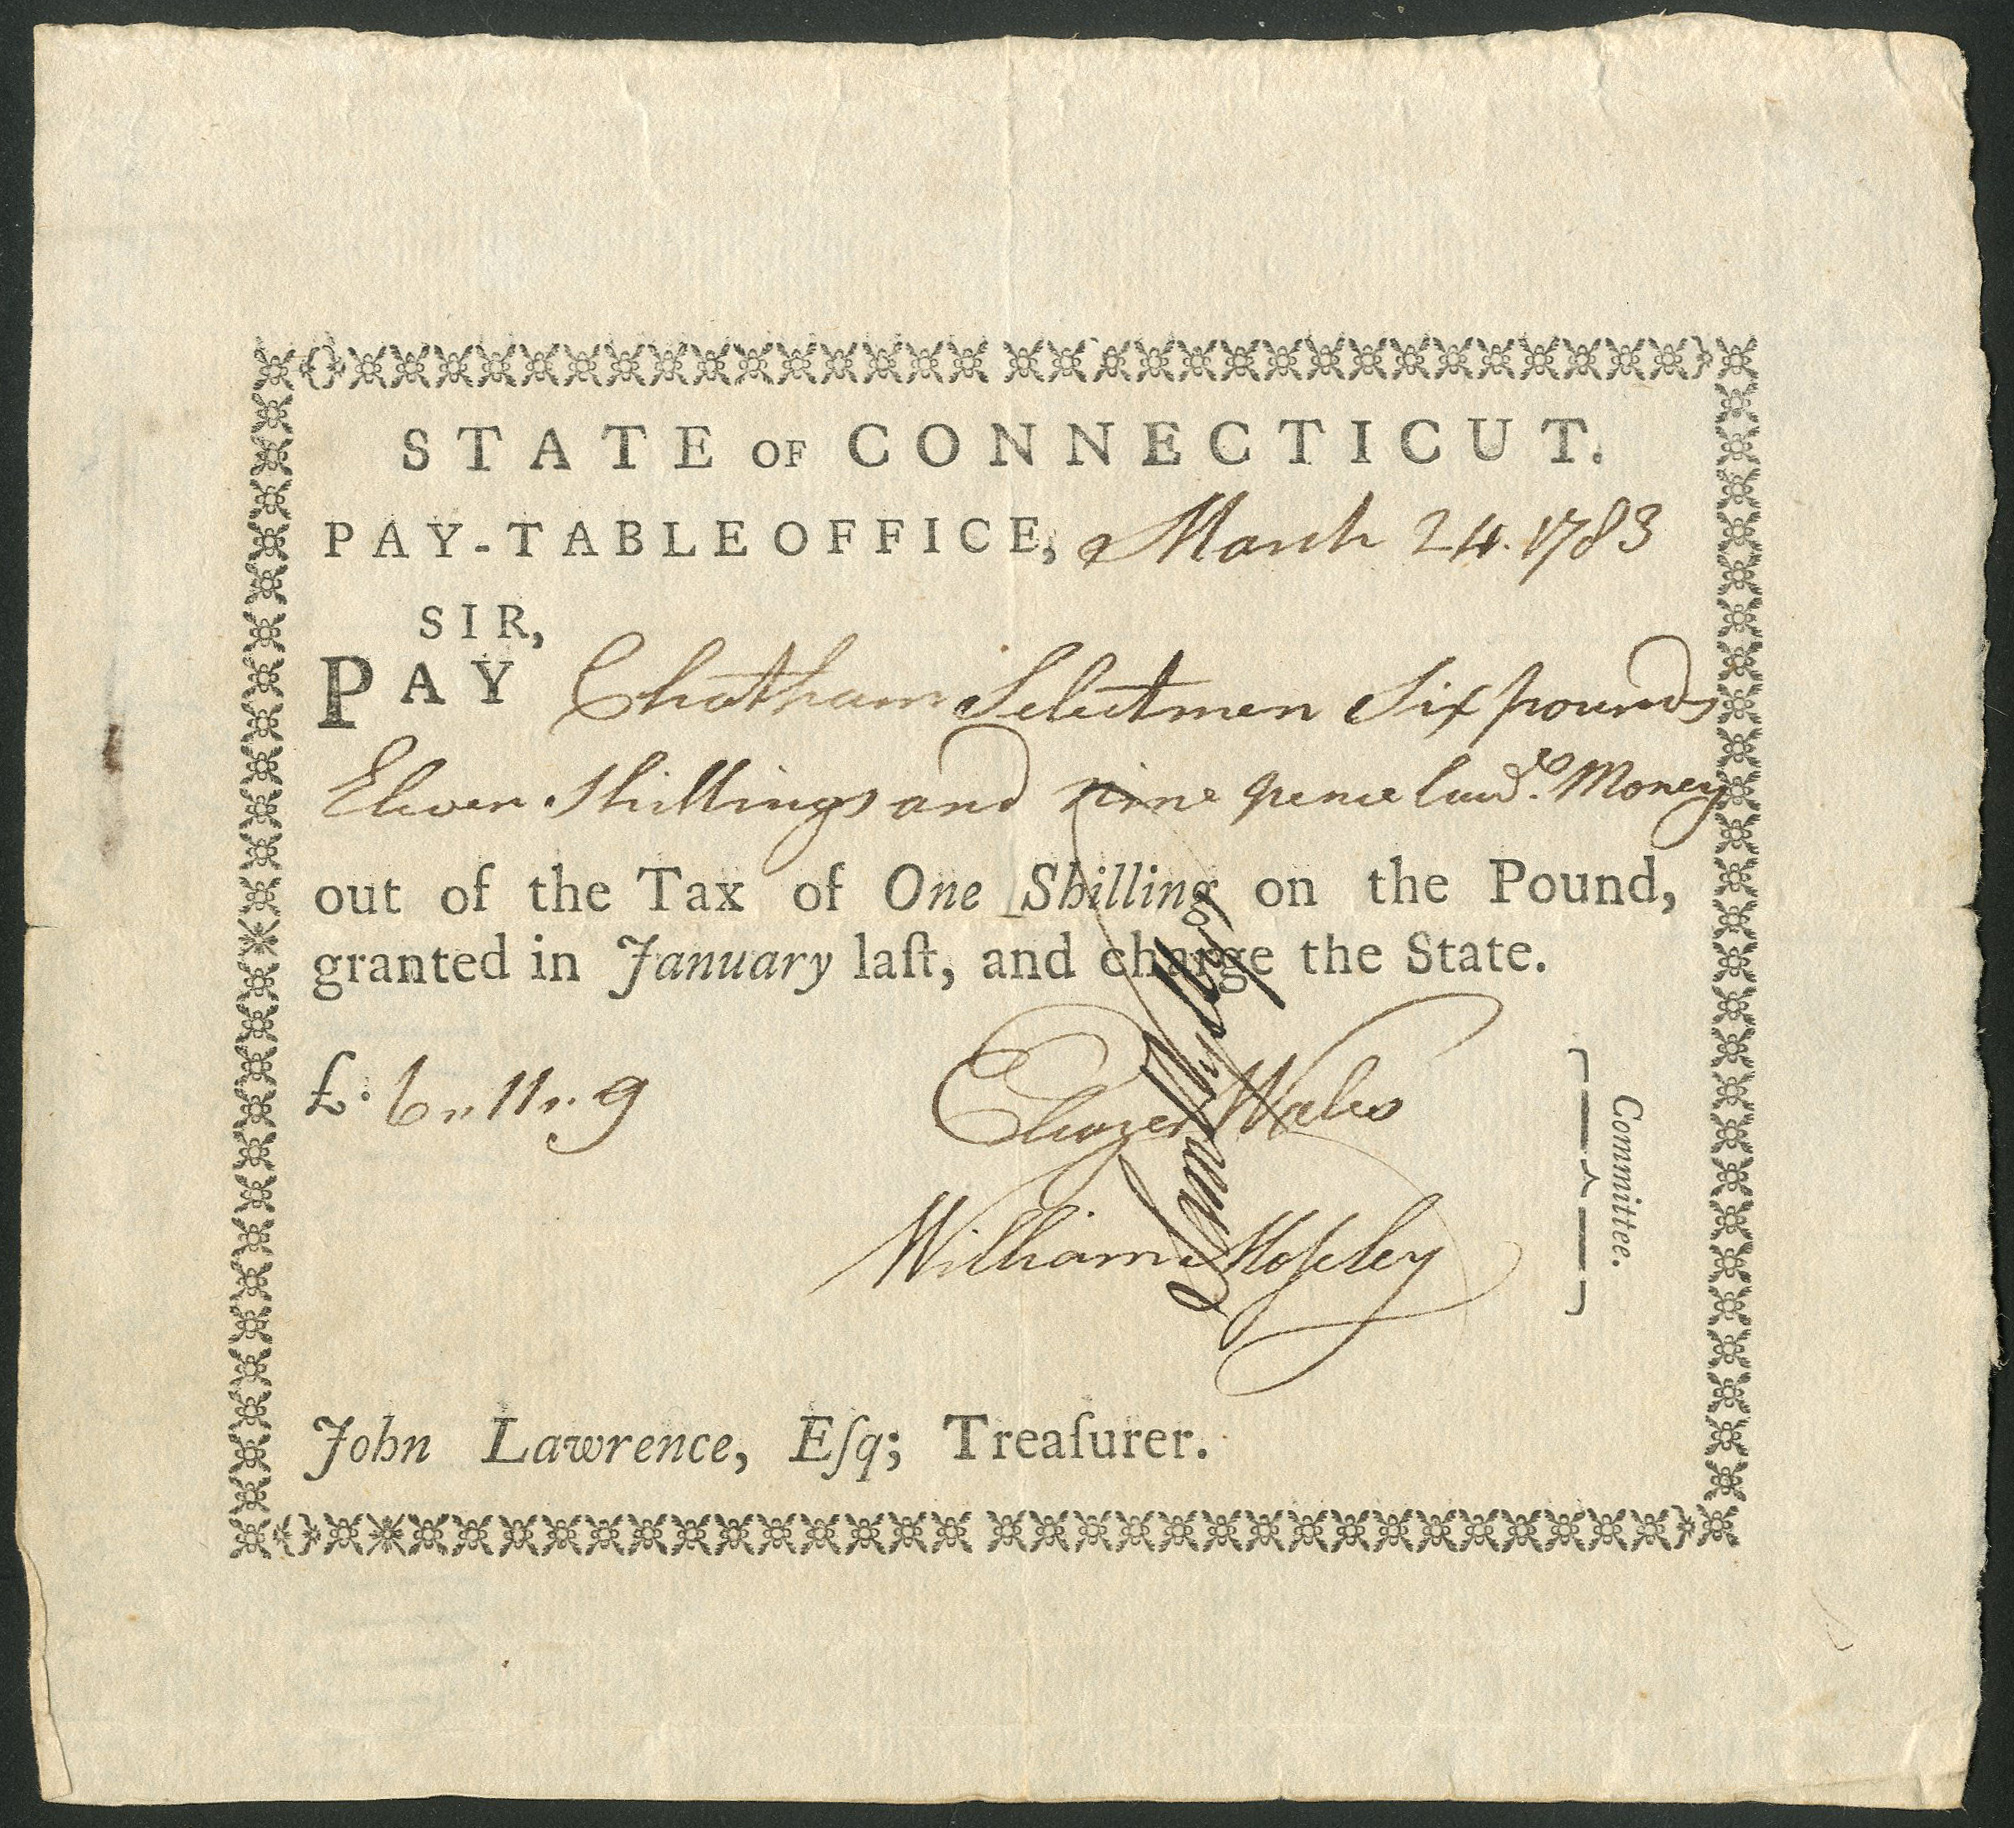 STATE OF CONNECTICUT.
PAY-TABLE OFFICE, March 24. 1783
SIR,
PAY Chatham Selectmen Six pounds
Eleven Shillings and nine pence Money
out of the Tax of One Shilling on the Pound,
granted in January laſt, and charge the State.
£. 6 „ 11 „ 9
Eleazer Wales
William Moſeley
Committee.
John Lawrence, Eſq; Treaſurer.